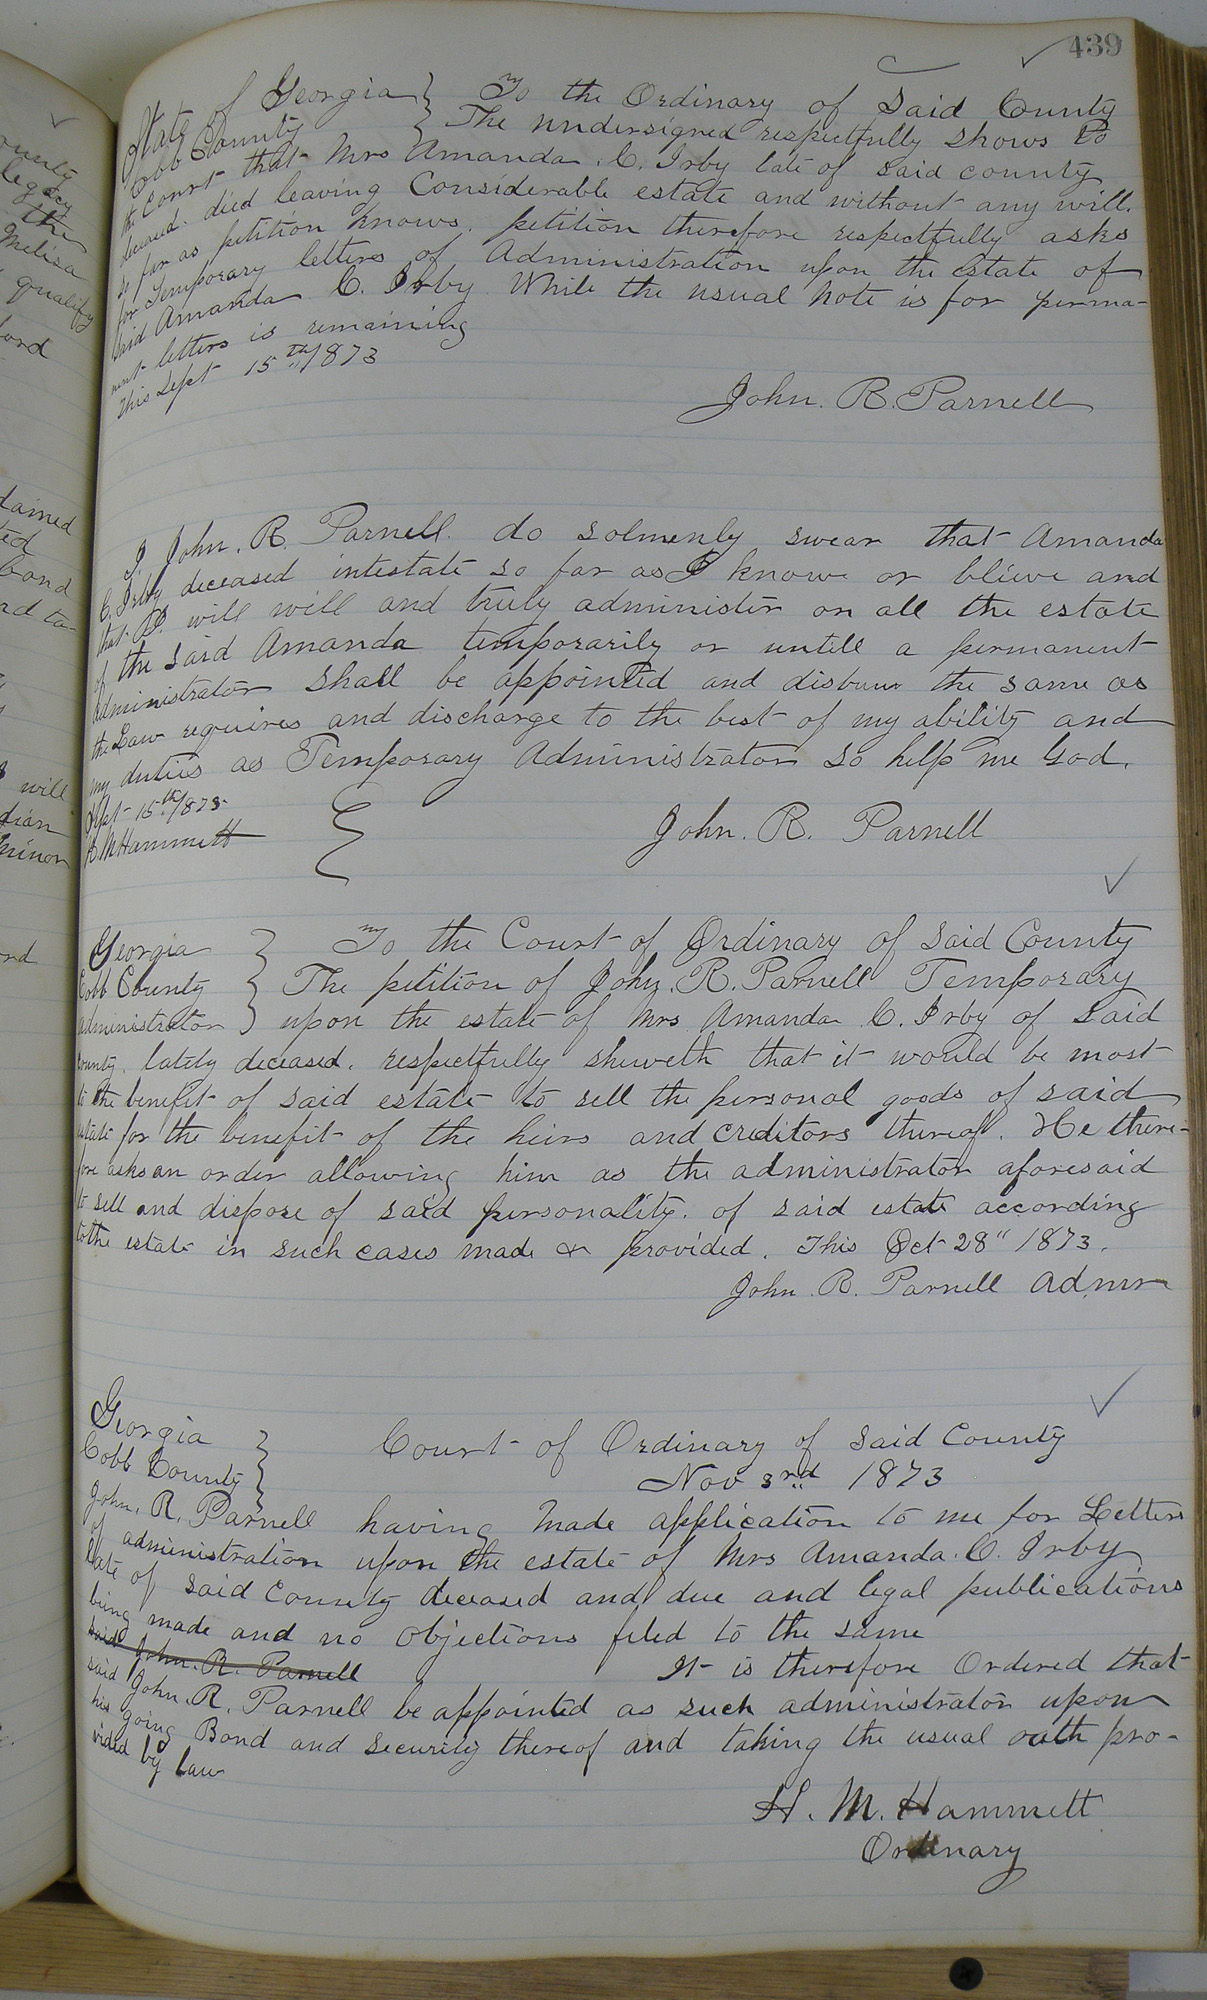 439
State of Georgia } To the Ordinary of Said County
Cobb County } The undersigned respectfully shows to
the Court that Mrs Amanda. C. Irby late of said county
deceased. died leaving Considerable estate and without any will.
so far as petition knows. petition therefore respectfully asks
for Temporary letters of Administration upon the Estate of
Said Amanda C. Irby While the usual note is for perma-
nent letters is remaining
This Sept 15th 1873
John. R. Parnell
I John. R. Parnell. do solmenly swear that Amanda
C. Irby deceased intestate so far as I know or blieve and
that I. will will and truly administer on all the estate
of the said Amanda temporarily or untill a permanent
administrator shall be appointed and disburse the same as
the Law requires and discharge to the best of my ability and
my duties as Temporary Administrator So help me God.
Sept 15th/1873
H. M Hammett
John. R. Parnell
Georgia } To the Court of Ordinary of Said County
Cobb County } The petition of John. R. Parnell Temporary
administrator } upon the estate of Mrs Amanda C. Irby of Said
County. lately deceased. respectfully sheweth that it would be most
to the benefit of said estate to sell the personal goods of said
estate for the benefit of the heirs and creditors thereof. He there-
fore asks an order allowing him as the administrator aforesaid
to sell and dispose of said personality. of said estate according
to the estate in such cases made & provided. This Oct 28" 1873.
John. R. Parnell Admr
Georgia } Court of Ordinary of said County
Cobb County } Nov 3rd 1873
John. R. Parnell having made application to me for Letters
of administration upon the estate of Mrs Amanda. C. Irby
late of said County deceased and due and legal publications
being made and no objections filed to the same
said John. R. Parnell It is therefore Ordered that
said John. R. Parnell be appointed as such administrator upon
his going Bond and security thereof and taking the usual oath pro-
vided by law
H. M. Hammett
Ordinary